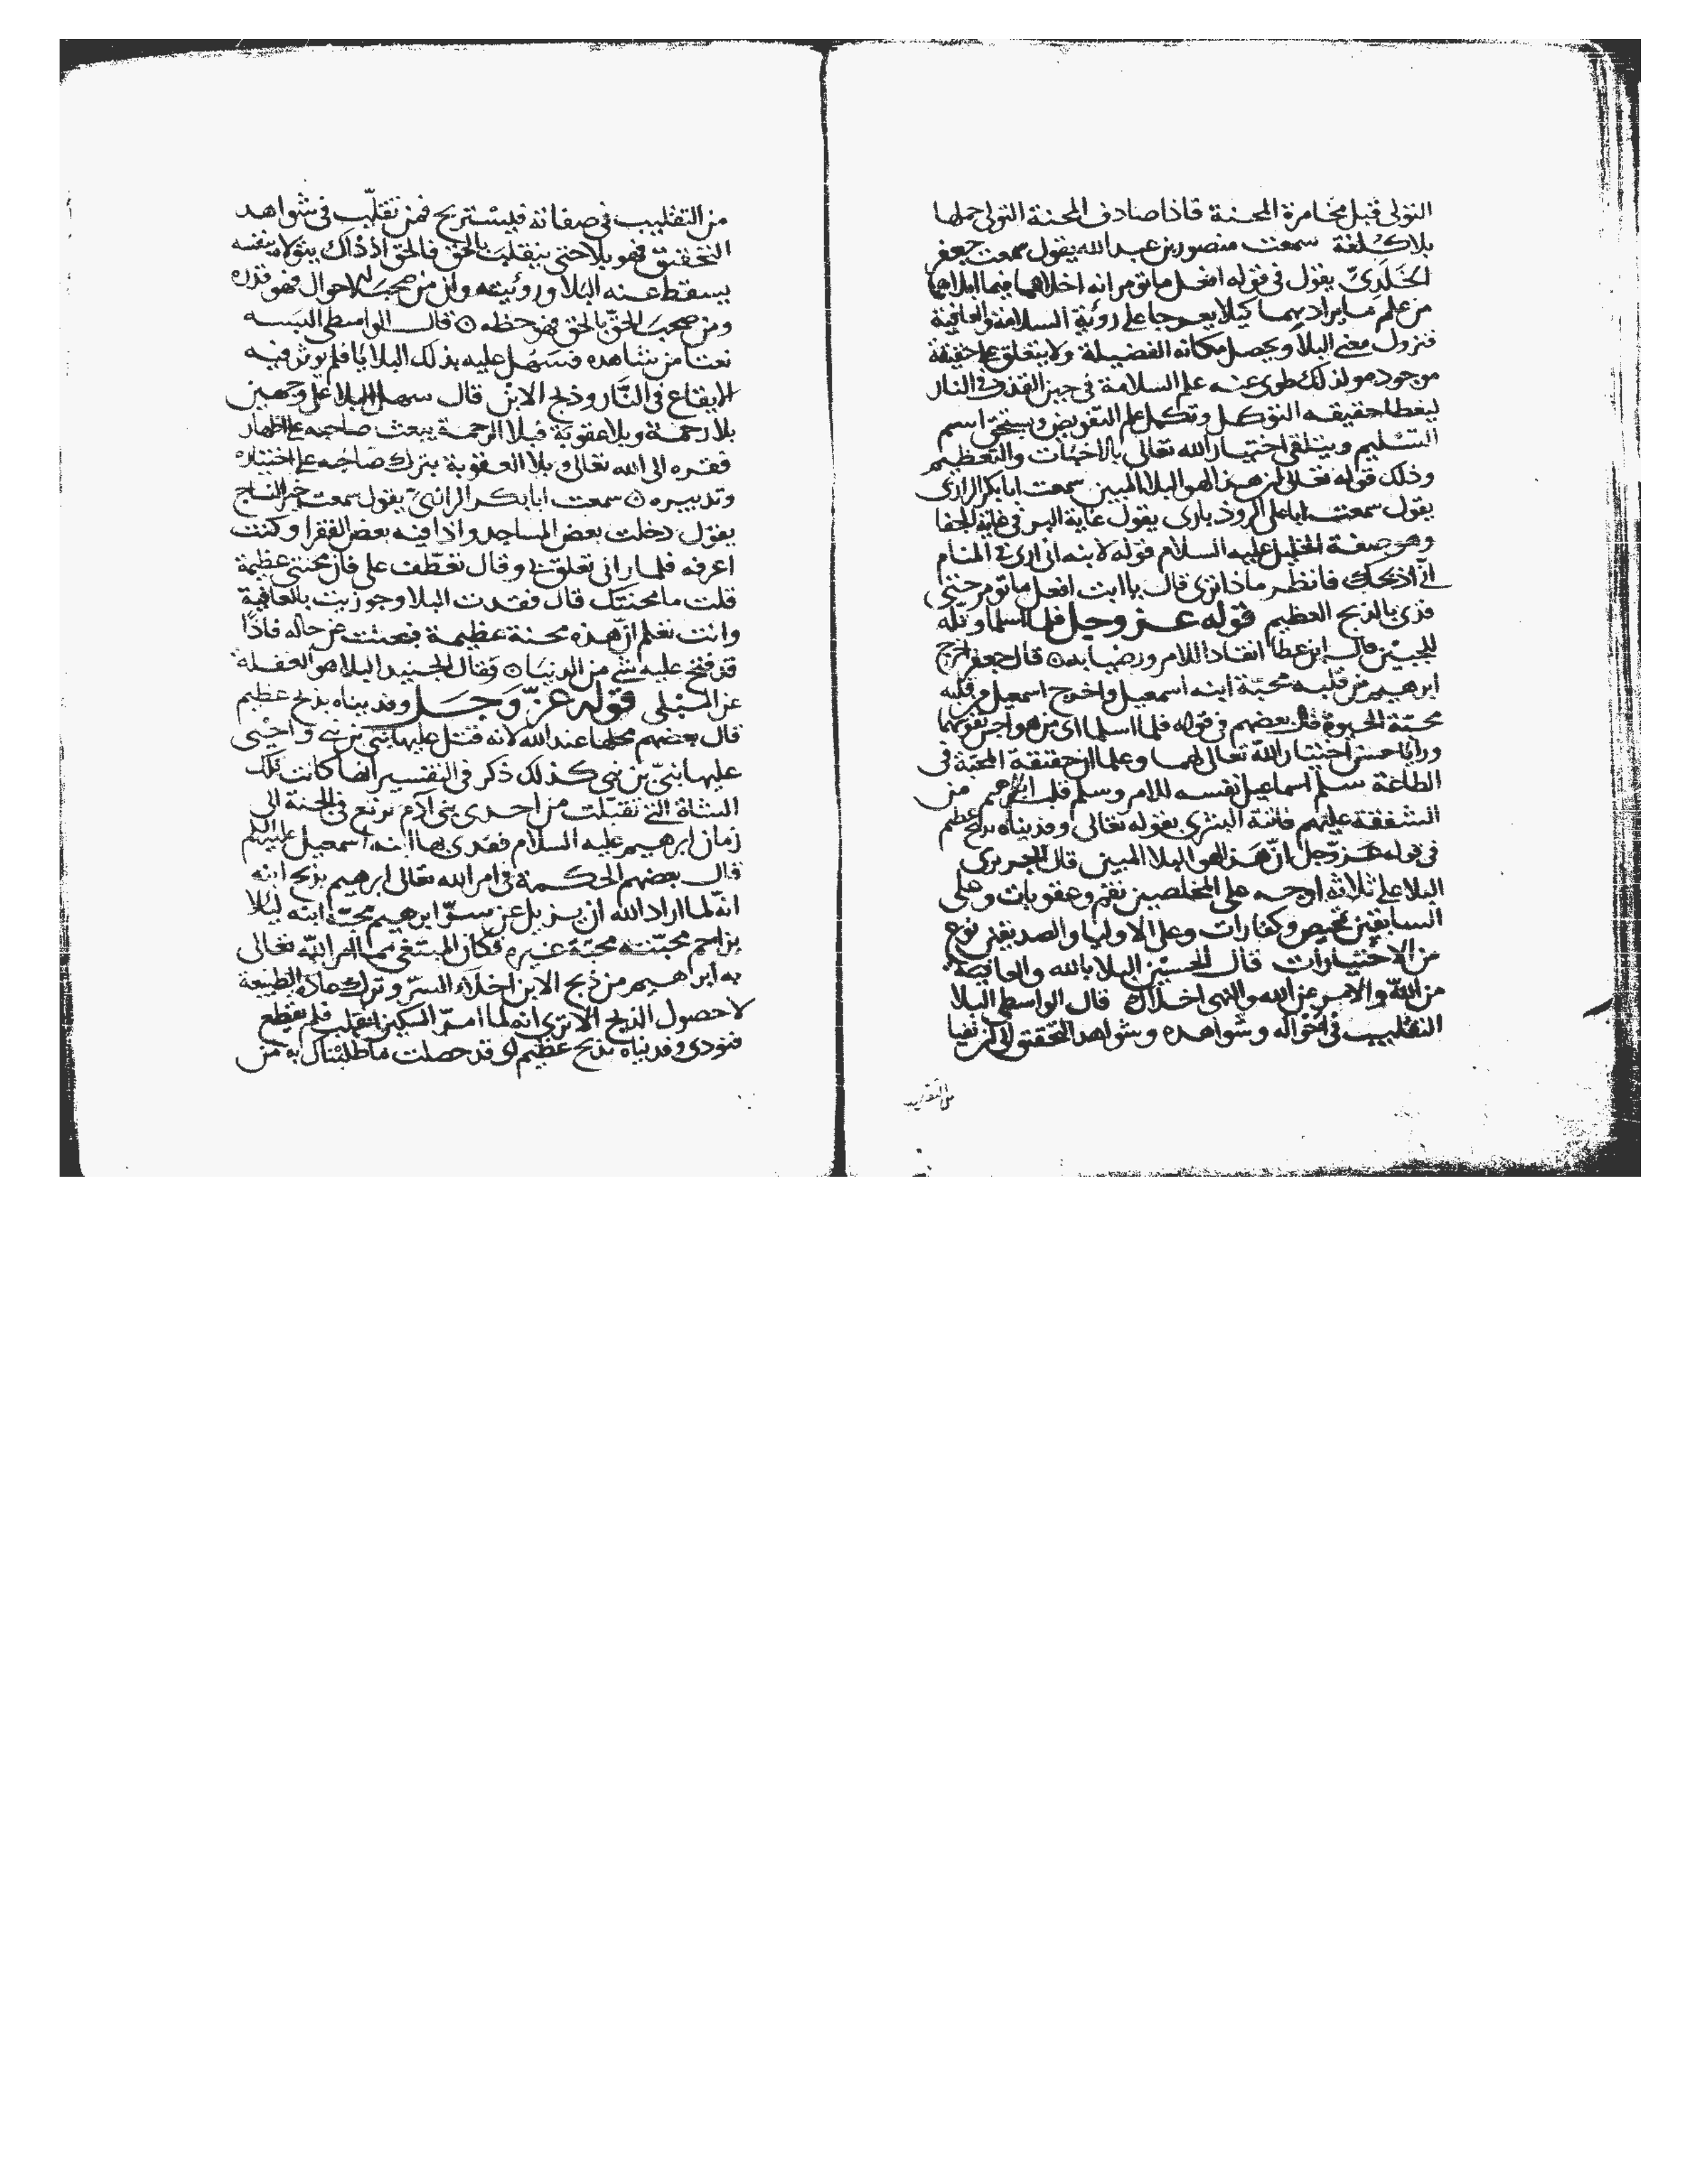 التولى قبل مخامرة المحنة فاذا صادف المحنة التولى حملها
بلا كلفة سمعت منصور بن عبد الله يقول سمعت جعفر
الخلدى يقول فى قوله افعل ما تومر انه اخلاهما فيما ابلاهما
من علم ما يراد بهما كيلا يعرجا على رؤية السلامة والعافية
فنزول معنى البلا ويحصل مكانه الفضيلة ولا يتعلق على حقيقة
موجودهو لذلك طوى عنه علم السلامة فى حين القذف فى النار
ليعطا حقيقه التوكل وتكمل علم التفويض ويستحق اسم
التسليم ويتلقى اختيار الله تعالى بالاخبات والتعظيم
وذلك قوله تعالى ان هذا لهو البلا المبين سمعت ابا بكر الرازى
يقول سمعت ابا على الروذبارى يقول غاية البر فى غاية الجفا
وهو صفة الخليل عليه السلام قوله لابنه انى ارى فى المنام
انى اذبحك فانظر ماذا ترى قال يا ابت افعل ما تومر حتى
فدى بالذبح العظيم قوله عز وجل فلما اسلما وتله
للجبين قال ابن عطا انقادا للامر ورضيا به ۞ قال جعفر اخرج
ابرهيم من قلبه محبة ابنه اسمعيل واخرج اسمعيل من قلبه
محبة الحيوة قال بعضهم فى قوله فلما اسلما اى من هواجس نفوسهما
ورايا حسن اختيار الله تعالى لهما وعلما ان حقيقة المحبة فى
الطاعة سلم اسماعيل نفسه للامر وسلم قلب ابرهيم من
الشفقة عليهم فاتته البشرى بقوله تعالى وفديناه بذبح عظيم
فى قوله عز وجل ان هذا لهو البلا المبين قال الجريرى
البلا على ثلاثة اوجه على المخلصين نقم وعقوبات وعلى
السابقين تمحيص وكفارات وعلى الاوليا والصديقين نوع
من الاختيارات قال الحسين البلا بالله والعافية
من الله والامر عن الله والنهى اخلال قال الواسطى البلا
التقليب فى احواله وشواهده وشواهد التحقق
من التقليب
من التقليب فى صفاته فيستريح فمن تقلب فى شواهد
التحقيق فهو بلا حتى ينقلب بالحق فالحق اذ ذاك يتولا بنفسه
يسقط عنه البلا ورؤيته وان من صحب الاحوال فهو قدره
ومن صحب الحق بالحق فهو حظه ۞ قال الواسطى البسه
نعتا من شاهده فسهل عليه بذلك البلايا فلم يوثر فيه
الايقاع فى النار وذبح الابن قال سهل البلا على وجهين
بلا رحمة وبلا عقوبة فبلا الرحمة يبعث صاحبه على اظهار
فقره الى الله تعالى وبلا العقوبة يترك صاحبه على اختياره
وتدبيره ۞ سمعت ابا بكر الرازى يقول سمعت خير النساج
يقول دخلت بعض المساجد واذا فيه بعض الفقرا وكنت
اعرفه فلما رانى تعلق بى وقال تعطف على فان محنتى عظيمة
قلت ما محنتك قال فقدت البلا وجوزيت بالعافية
وانت تعلم ان هذه محنة عظيمة فبحثت عن حاله فاذا
قد فتح عليه شى من الدنيا ۞ وقال الجنيد البلا هو الغفلة
عن المبتلى قوله عز وجل وفديناه بذبح عظيم
قال بعضهم محلها عند الله لانه فتل عليها نبى من نبى واحيى
عليها نبى بن نبى كذلك ذكر فى التفسير ايضا كانت تلك
الشاة التى تقبلت من احدى بنى آدم ترتع فى الجنة الى
زمان ابرهيم عليه السلام ففدى بها ابنه اسمعيل عليه السلم
قال بعضهم الحكمة فى امر الله تعالى ابرهيم بذبح ابنه
انه لما اراد الله ان يزيل عن سر ابرهيم محبة ابنه ليلا
يزاحم محبته محبة غيره فكان المبتغى مما امر الله تعالى
به ابرهيم من ذبح الابن اخلاء السر وترك عادة الطبيعة
لا حصول الذبح الا ترى انه لما امر السكين انقلب فلم تقطع
فنودى وفديناه بذبح عظيم اى قد حصلت ما طلبناك به من